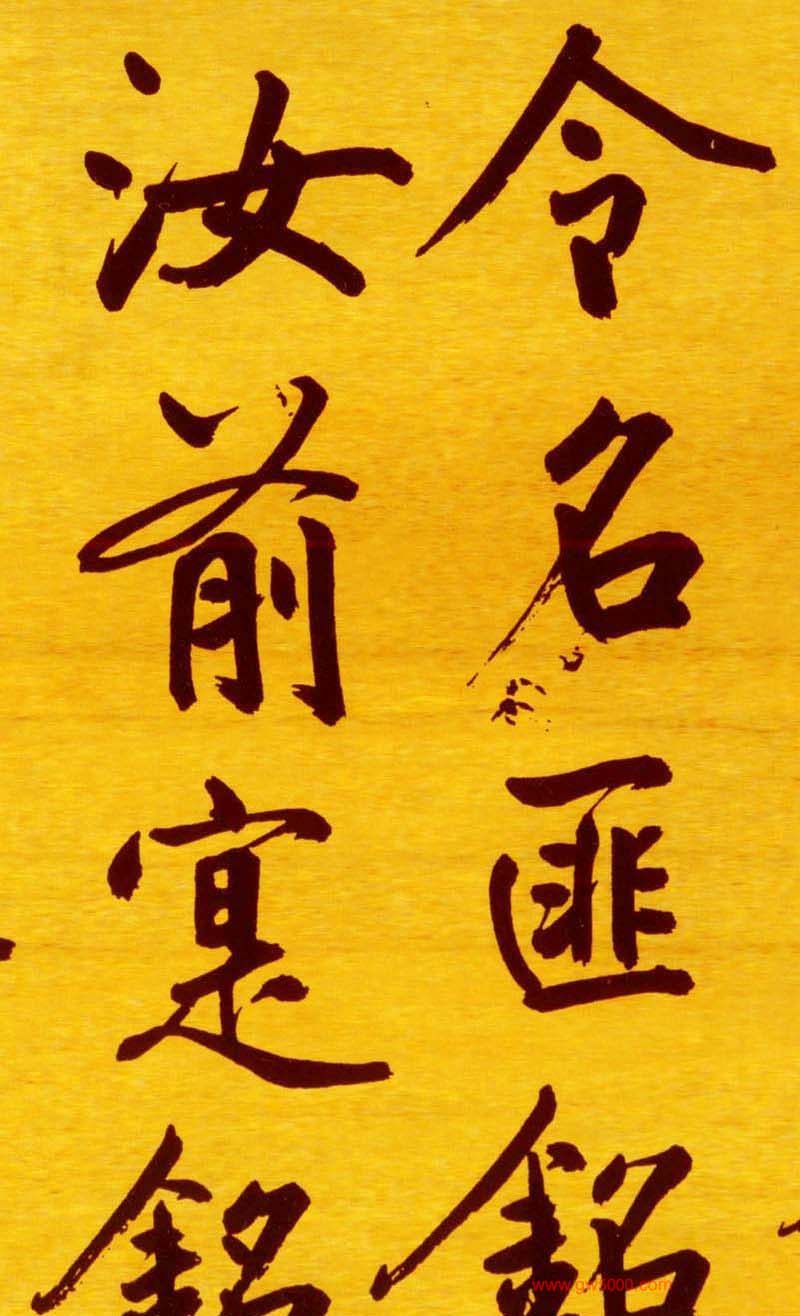 令名匪銘
汝前寔銘
www.gw5000.com